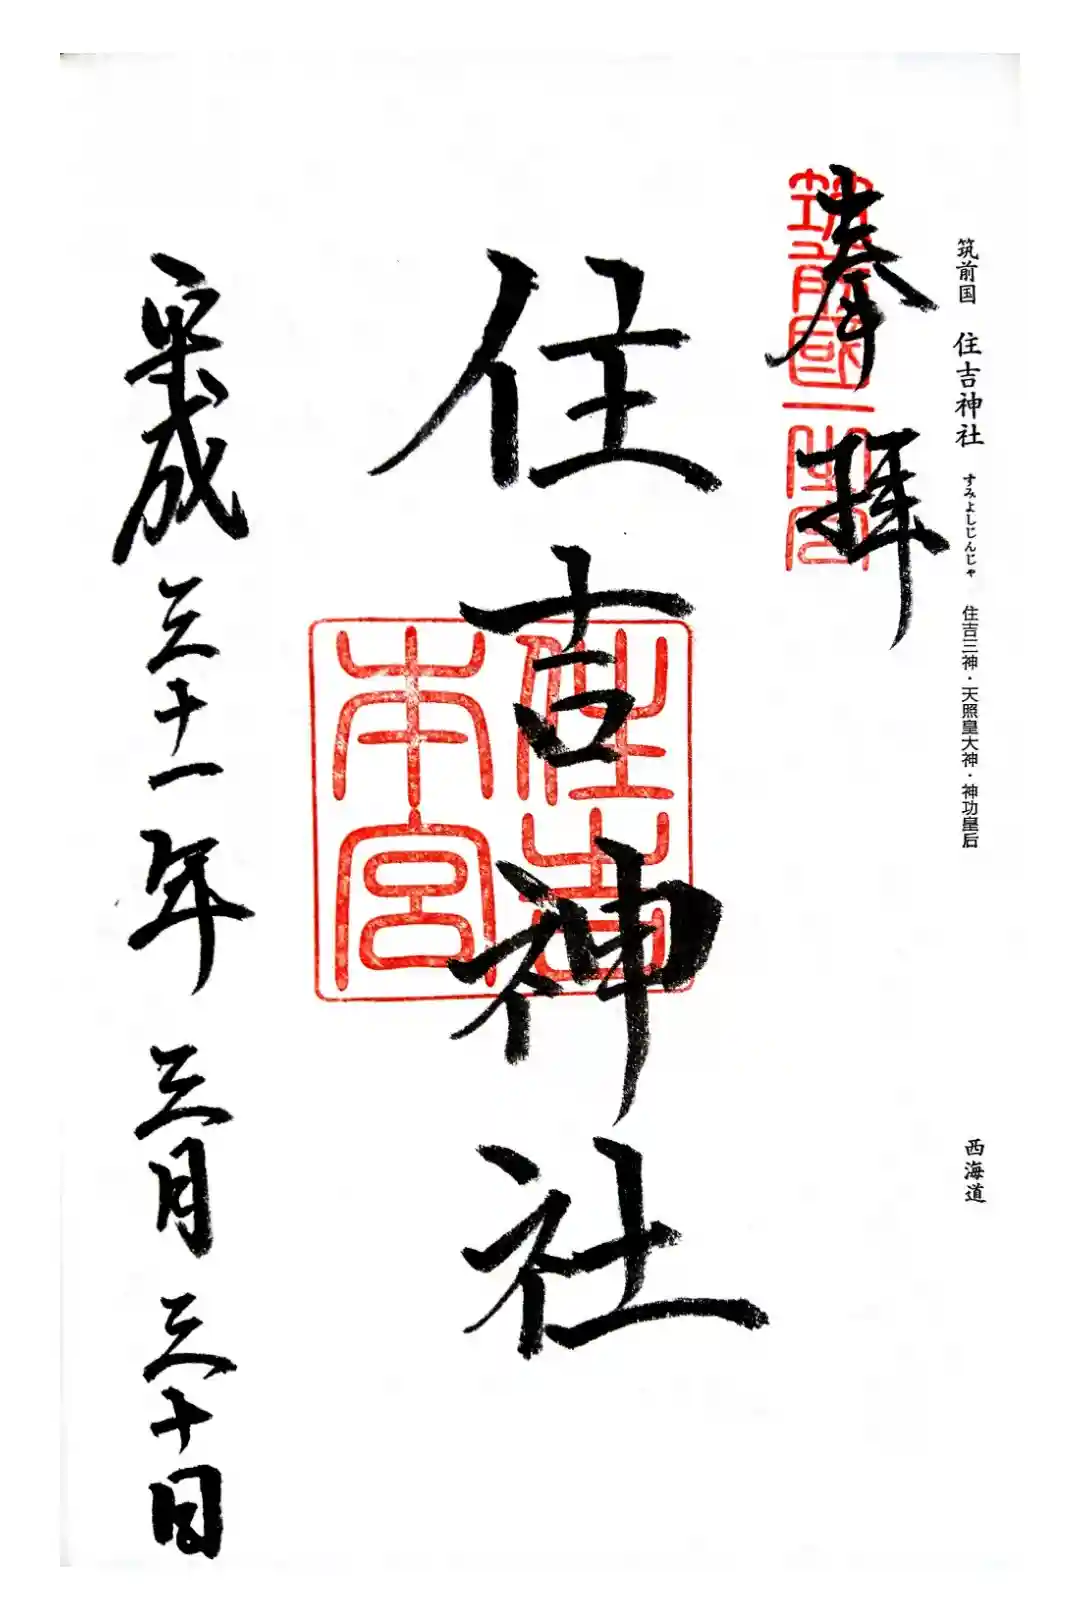 筑前国 住吉神社 すみよしじんじゃ 住吉三神・天照皇大神・神功皇后 西海道
奉拝
筑前國一之宮
住吉神社
住吉
本宮
平成三十一年三月三十日